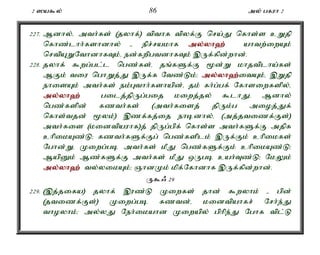 2 ஸயகூல் 86 அல் பகரா 2
227. ஆனால், அவர்கள் (தலாக்) விவாக விலக்கு செய்து கொள்ள உறுதி
கொண்டார்களானால் - நிச்சயமாக அல்லாஹ் யாவற்றையும்
செவியுறுவோனாகவும், நன்கறிபவனாகவும் இருக்கின்றான்.
228. தலாக் கூறப்பட்ட பெண்கள், தங்களுக்கு மூன்று மாதவிடாய்கள்
ஆகும் வரை பொறுத்து இருக்க வேண்டும்; அல்லாஹ்வையும், இறுதி
நாளையும் அவர்கள் நம்புவார்களாயின், தம் கர்ப்பக் கோளறைகளில்,
அல்லாஹ் படைத்திருப்பதை மறைத்தல் கூடாது. ஆனால்
பெண்களின் கணவர்கள் (அவர்களைத் திரும்ப அழைத்துக்
கொள்வதன் மூலம்) இணக்கத்தை நாடினால், (அத்தவணைக்குள்)
அவர்களை (மனைவியராகத்) திருப்பிக் கொள்ள அவர்களுக்கு அதிக
உரிமையுண்டு; கணவர்களுக்குப் பெண்களிடம் இருக்கும் உரிமைகள்
போன்று முறைப்படி அவர்கள் மீது பெண்களுக்கும் உரிமையுண்டு;
ஆயினும் ஆண்களுக்கு அவர்கள் மீது ஒருபடி உயர்வுண்டு; மேலும்
அல்லாஹ் வல்லமையும்; ஞானமும் மிக்கோனாக இருக்கின்றான்.
229. (இத்தகைய) தலாக் இரண்டு முறைகள் தான் கூறலாம் - பின்
(தவணைக்குள்) முறைப்படி கணவன், மனைவியாகச் சேர்ந்து
வாழலாம்; அல்லது நேர்மையான முறையில் பிரிந்து போக விட்டு